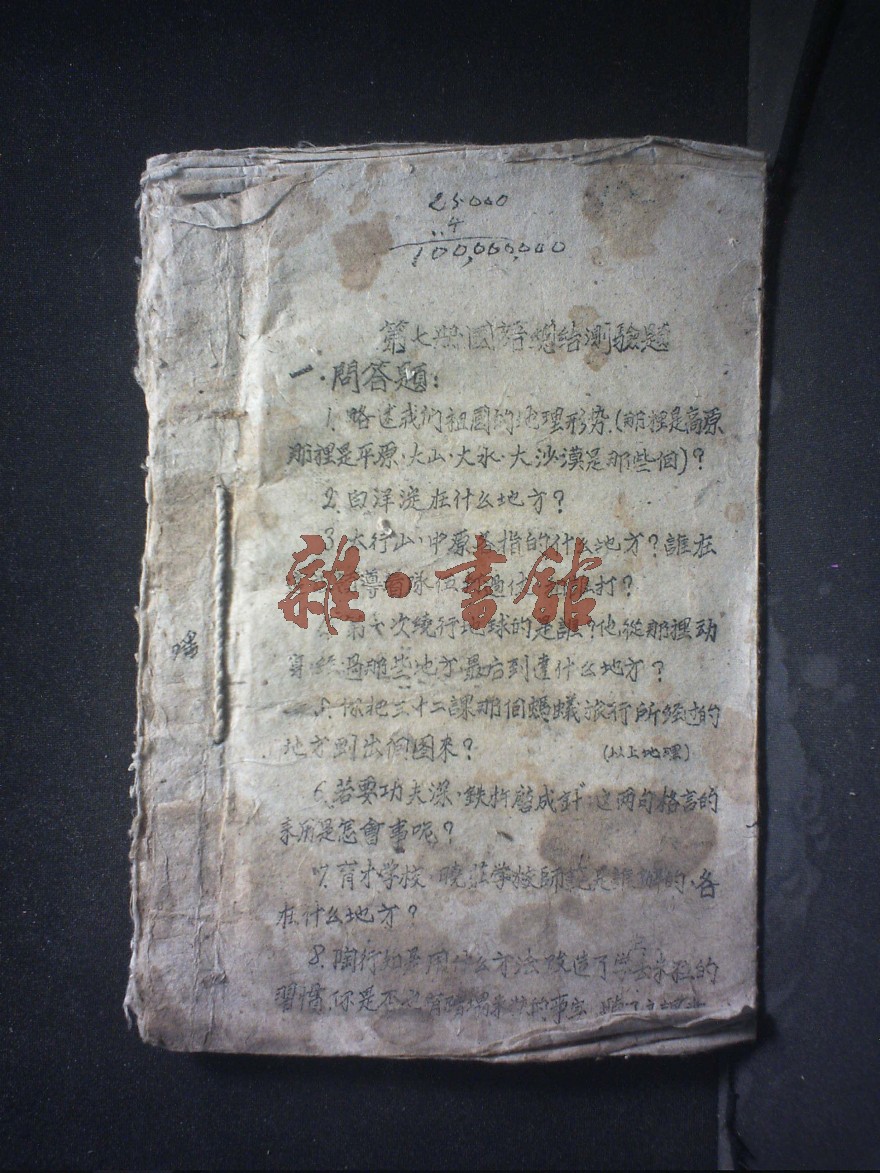 25000
4
100,000,000
第七册國語總結測驗題
一·問答題：
1.略述我们祖國的地理形势.(那裡是高原
那裡是平原·大山·大水·大沙漠是那些個)？
2.白洋淀在什么地方？
3.太行山·中原是指的什么地方？誰在
導 隊伍 過 打？
4.第七次繞行地球的是誰？他從那裡动
身·经過那些地方·最后到達什么地方？
5.你把三十二課那個螞蟻旅行所经过的
地方划出個图来？
(以上地理)
6.若要功夫深·鉄杵磨成針·这两句格言的
来历是怎會事呢？
7.育才学校·曉莊学校師範是誰辦的·各
在什么地方？
8.陶行知是用什么方法改造了学生 的
習慣.你是不 的事
雜·書館